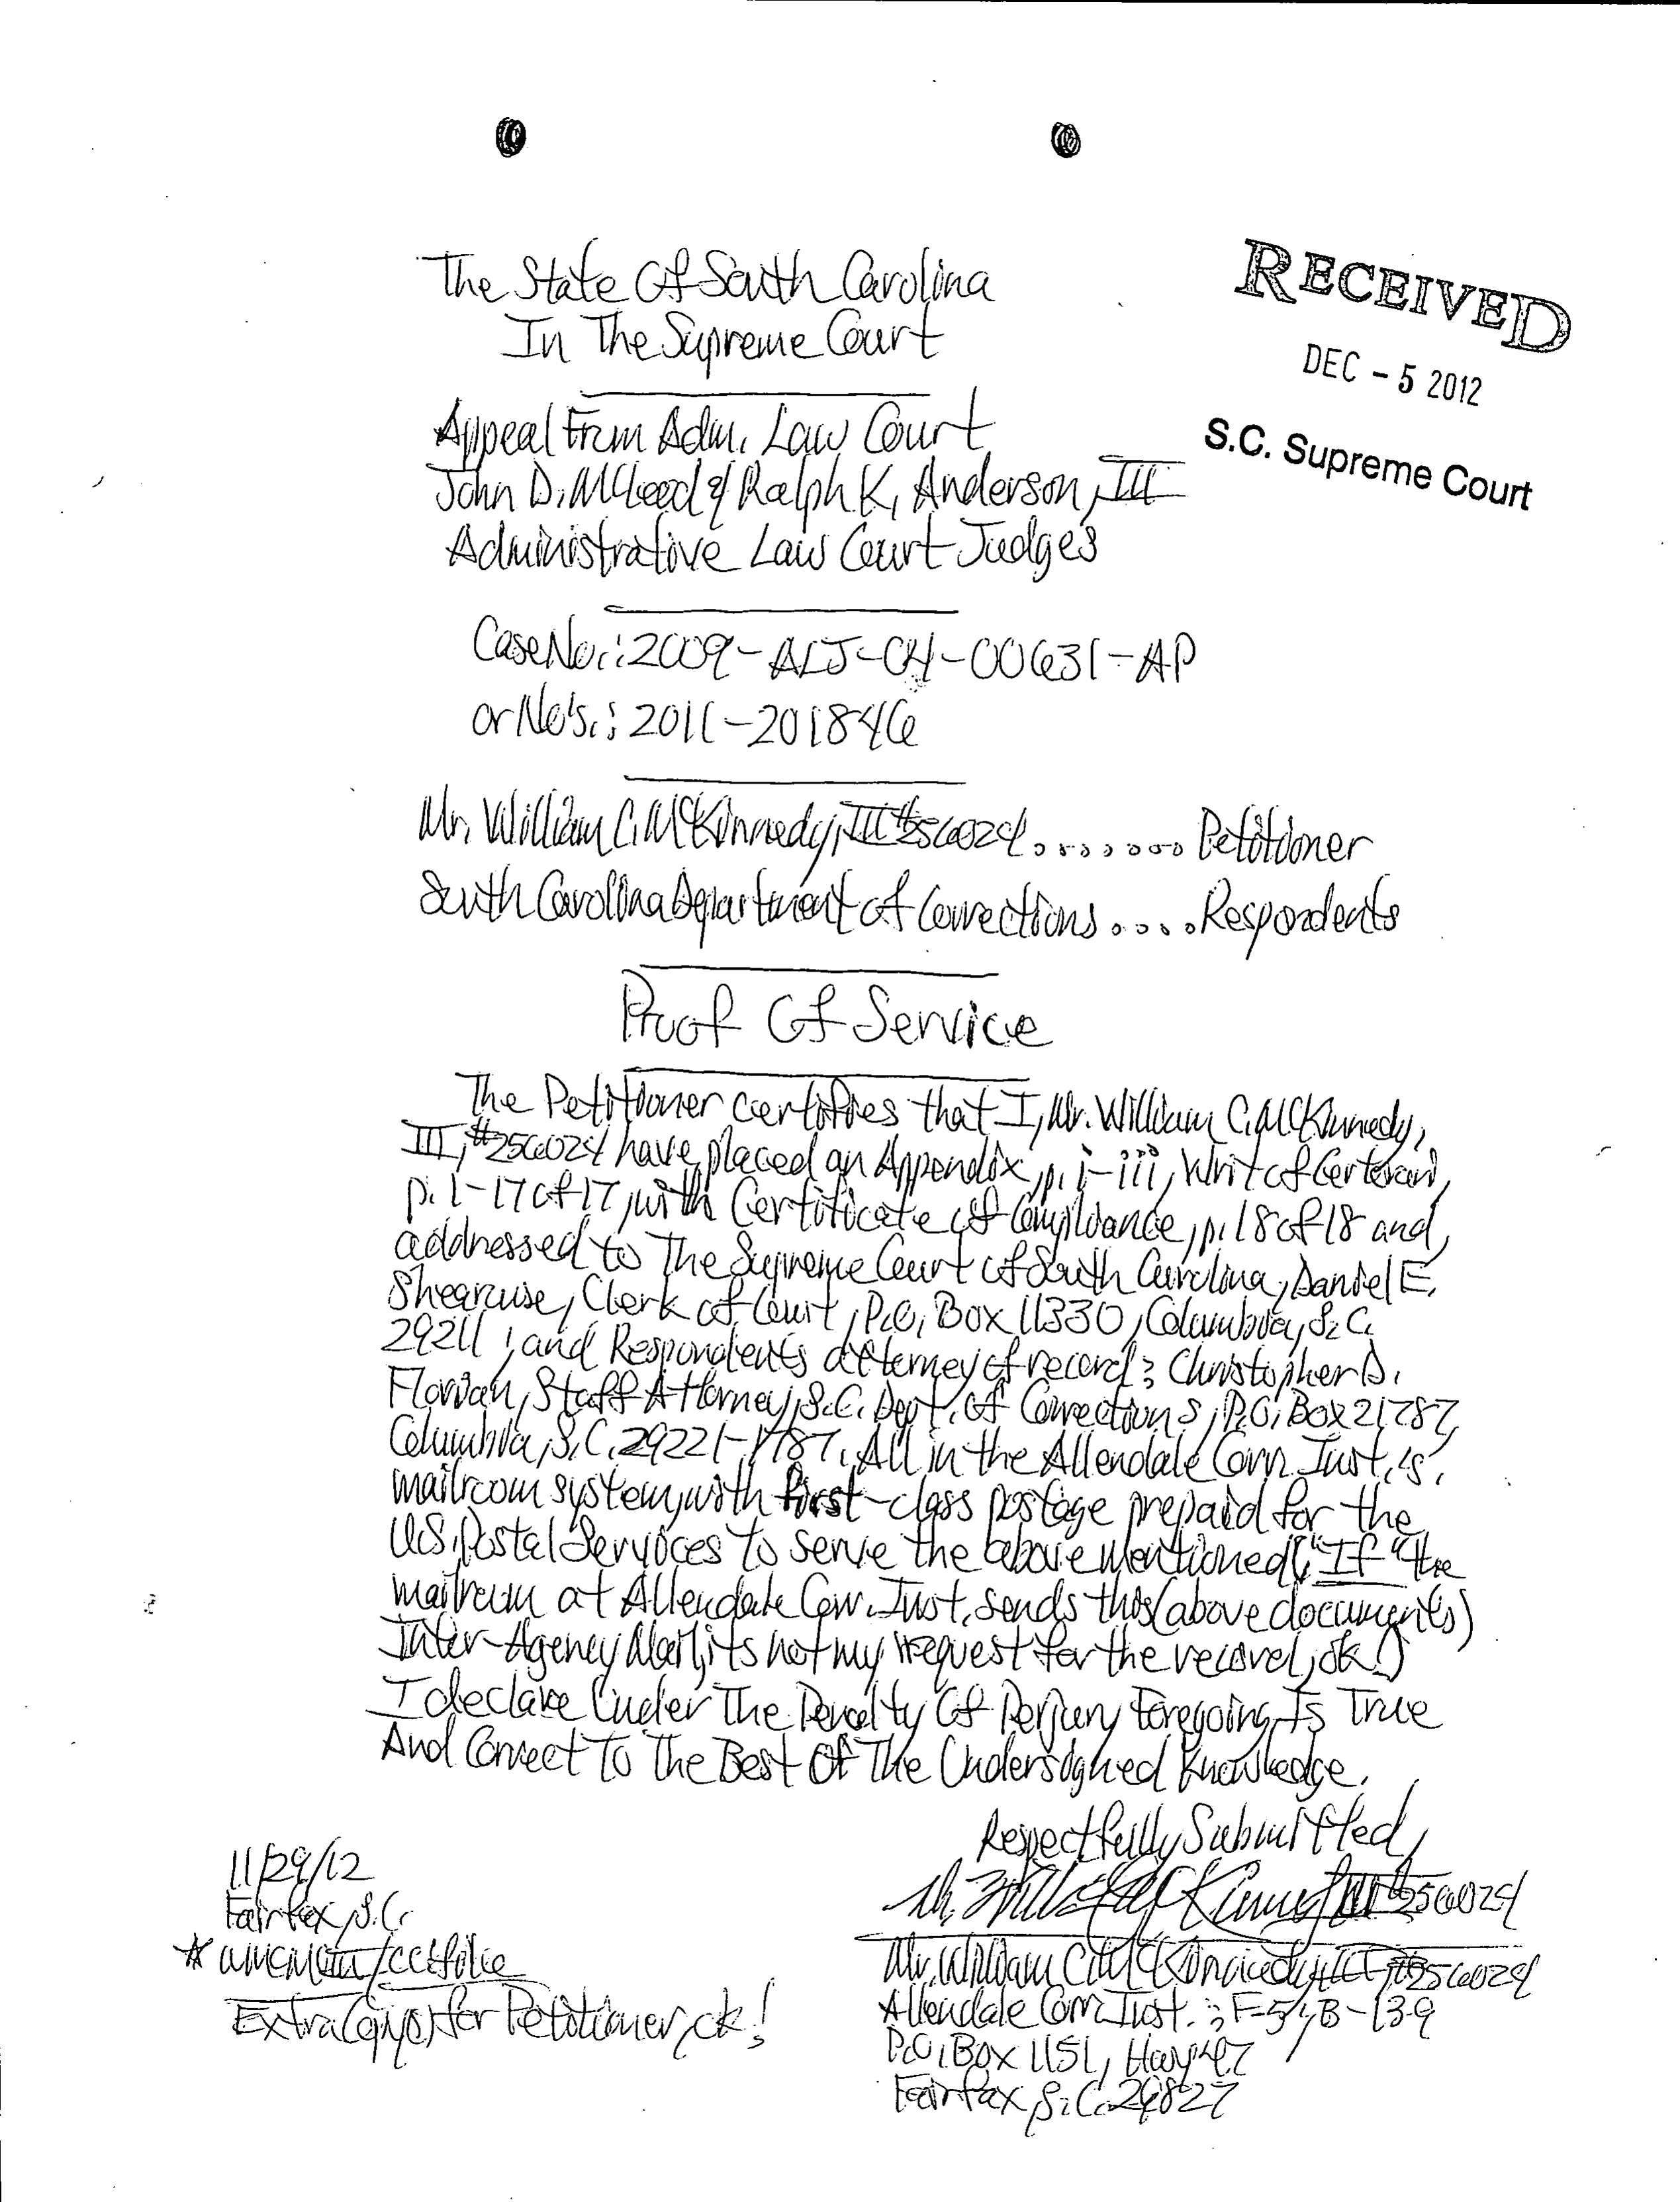 The State Of South Carolina
In The Supreme Court
RECEIVED
DEC - 5 2012
S.C. Supreme Court
Appeal From Adm. Law Court
John D. McLeod & Ralph K. Anderson, III
Administrative Law Court Judges
Case No.: 2009-ALJ-04-00631-AP
or No's.: 2011-201846
Mr. William C. McKinnedy, III #256024 ........ Petitioner
South Carolina Department of Corrections .... Respondents
Proof Of Service
The Petitioner certifies that I, Mr. William C. McKinnedy,
III, #256024 have placed an Appendix, p. i-iii, Writ of Certorari,
p. 1-17 of 17, with Certificate of Compliance, p. 18 of 18 and,
addressed to The Supreme Court of South Carolina, Daniel E.
Shearouse, Clerk of Court, P.O. Box 11330, Columbia, S.C.
29211; and Respondents attorney of record: Christopher D.
Florian, Staff Attorney, S.C. Dept. of Corrections, P.O. Box 21787,
Columbia, S.C. 29221-1787. All in the Allendale Corr. Inst.'s
mailroom system, with first-class postage prepaid for the
U.S. Postal Services to serve the above mentioned ("If" the
mailroom at Allendale Corr. Inst. sends this (above documents)
Inter-Agency Mail, its not my request for the record, ok.)
I declare Under The Penalty Of Perjury Foregoing Is True
And Correct To The Best Of The Undersigned Knowledge.
Respectfully Submitted,
11/29/12
Fairfax, S.C.
#256024
Mr. William C. McKinnedy, III, #256024
Allendale Corr. Inst.; F-5, B-139
P.O. Box 1151, Hwy 47
Fairfax, S.C. 29827
Extra Copy(s) for Petitioner, ok!